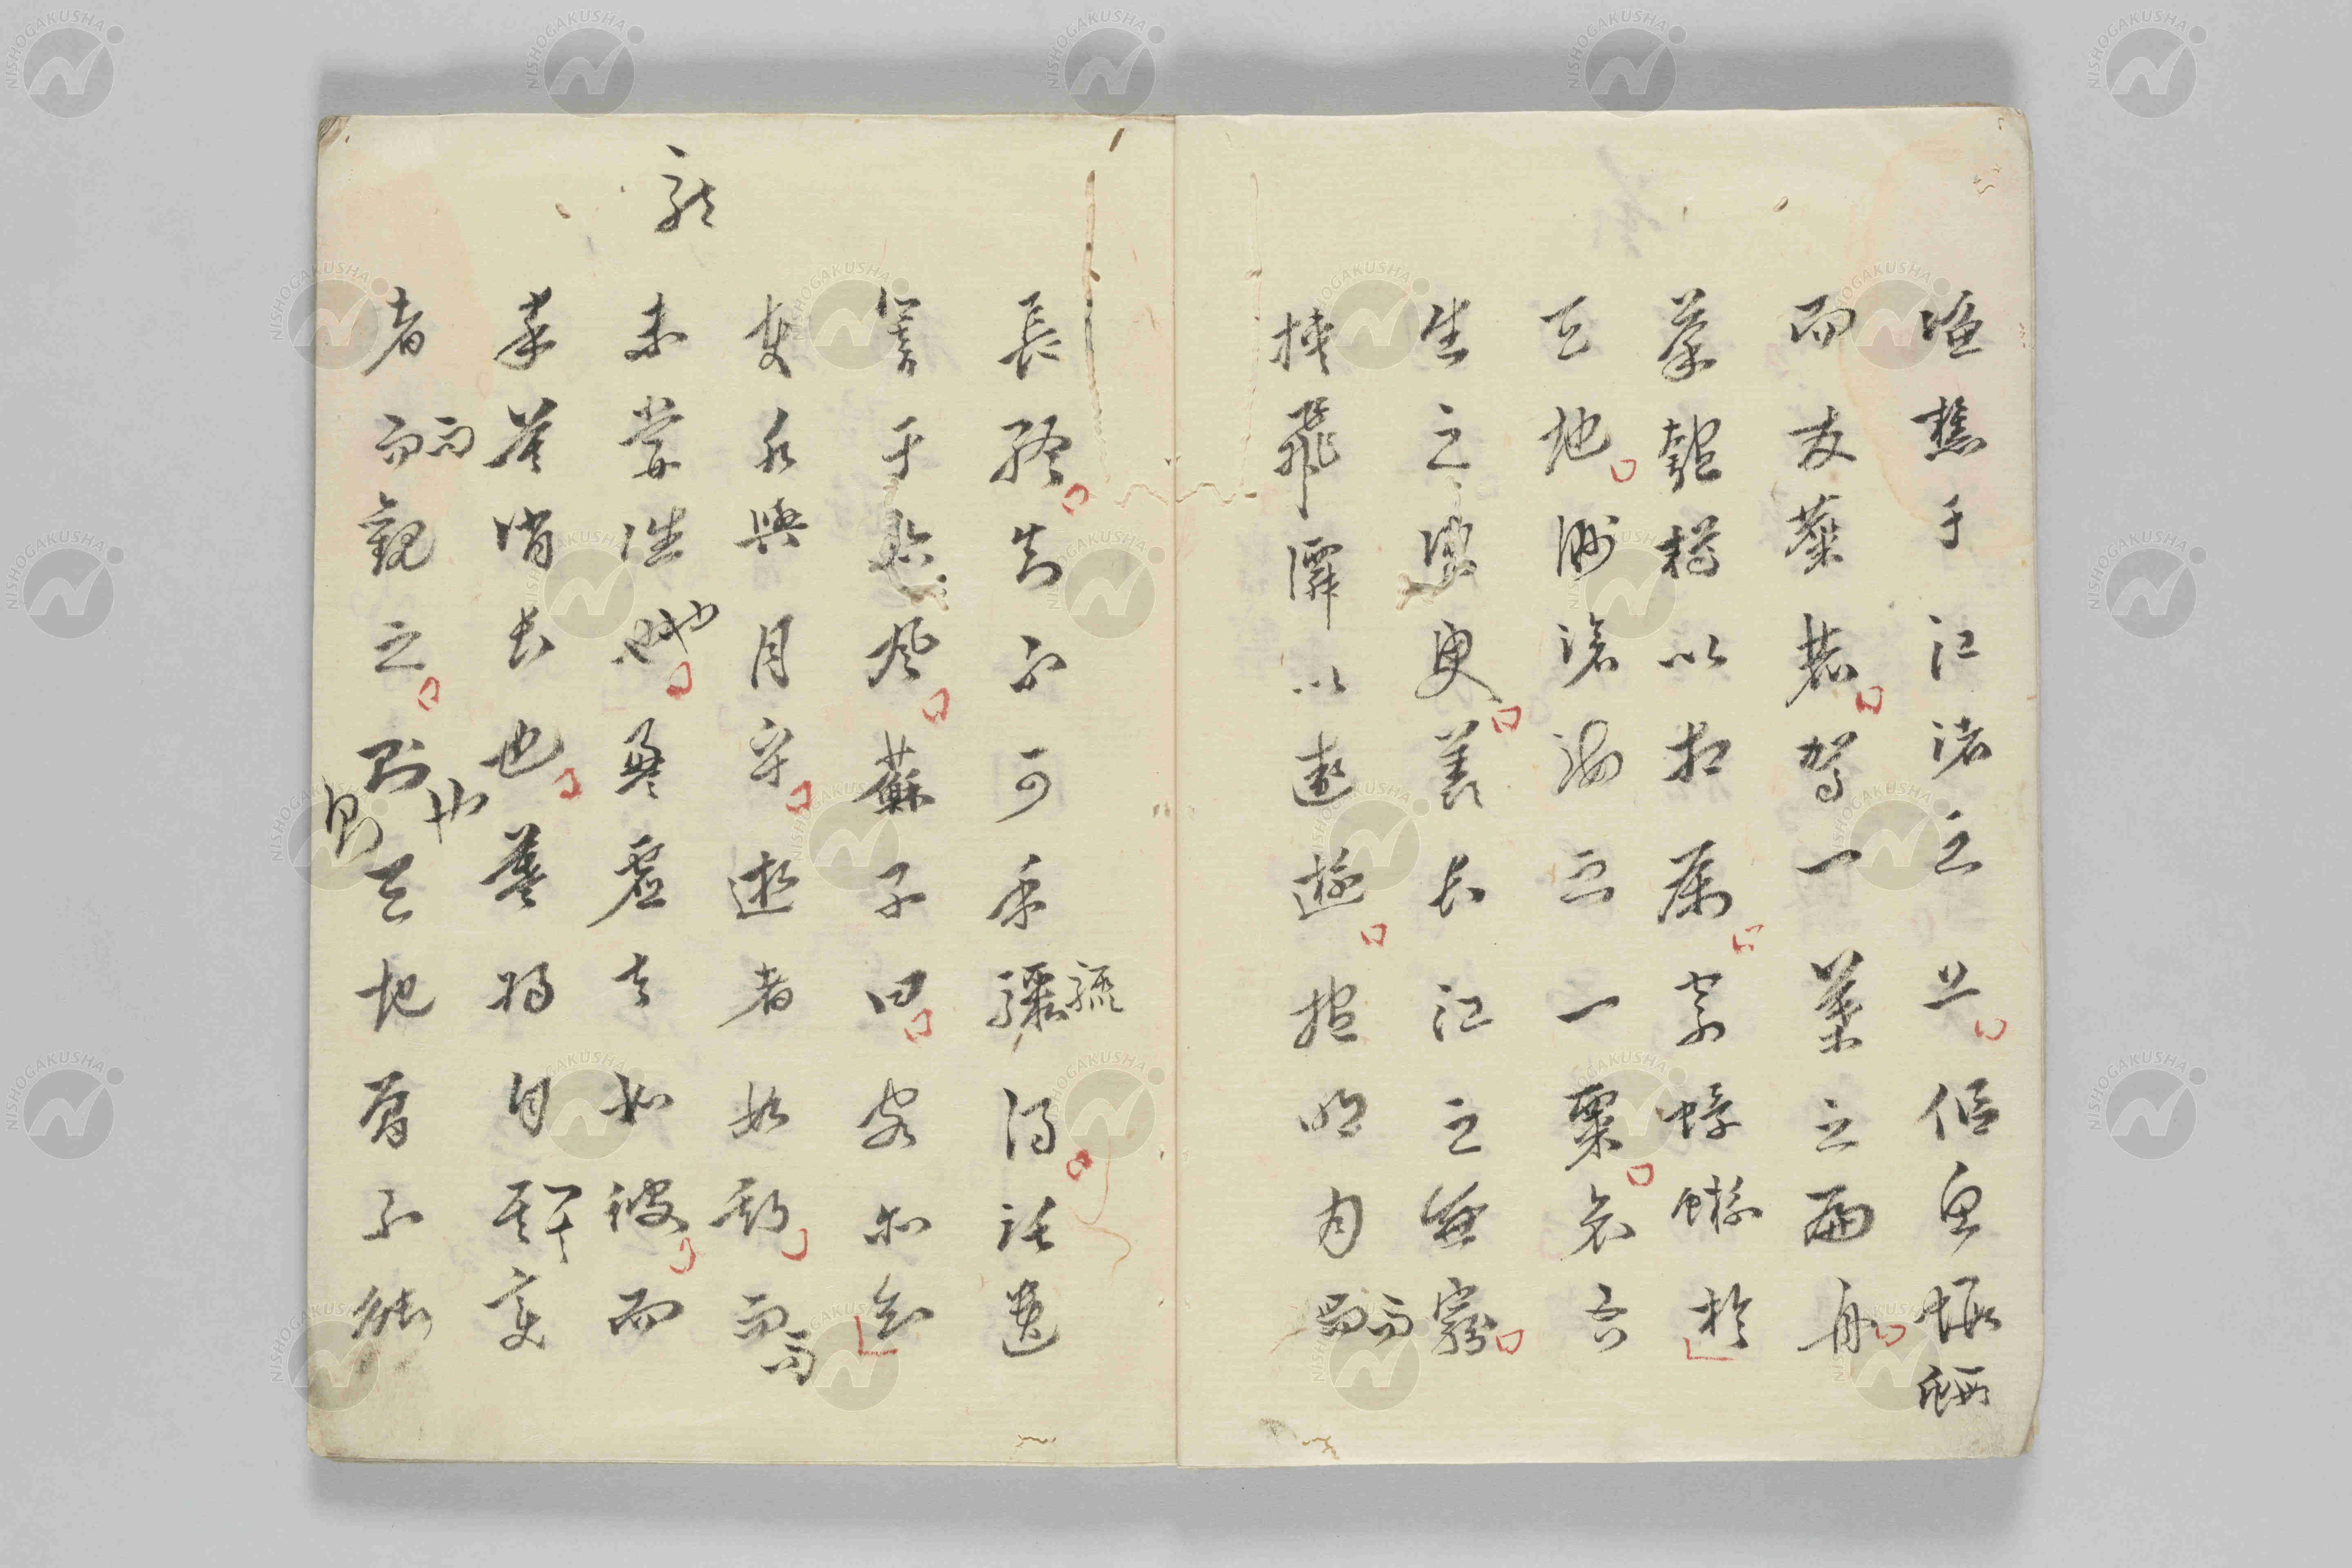 漁樵于江渚之上侶魚蝦
而友麋鹿駕一葉之扁舟
舉匏樽以相属寄蜉蝣於
天地渺滄海之一粟哀吾
生之須臾羨長江之無窮
挾飛僊以遨遊抱明月而
而
長終知不可乎驟得託遺
響于悲風蘇子曰客亦知
夫水與月乎逝者如斯而
而
未嘗往也盈虚者如彼而
也
卒莫消長也蓋將自其變
者而觀之則天地曽不能
而
也
則
NISHOGAKUSHA